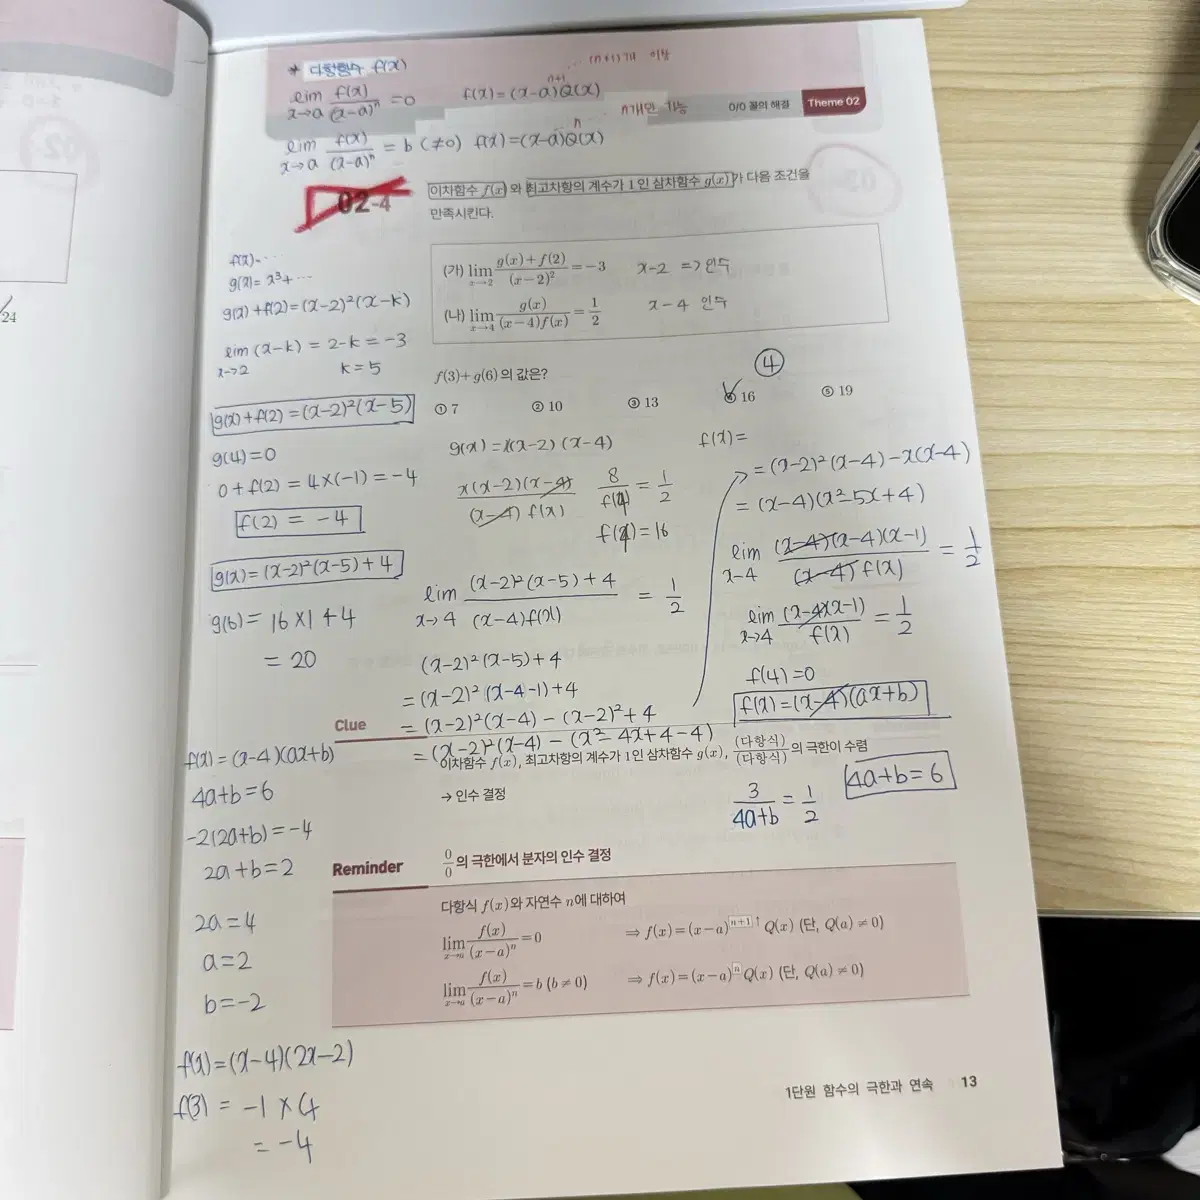 * 다항함수 f(x)
lim x→a f(x)/(x-a)ⁿ = 0 f(x)=(x-a)ⁿ⁺¹Q(x) ... (n+1)개 이상
lim x→a f(x)/(x-a)ⁿ = b (≠0) f(x)=(x-a)ⁿQ(x) ... n개만 가능
0/0 꼴의 해결 Theme 02
02-4
이차함수 f(x)와 최고차항의 계수가 1인 삼차함수 g(x)가 다음 조건을
만족시킨다.
(가) lim x→2 (g(x)+f(2))/(x-2)² = -3 x-2 => 인수
(나) lim x→4 g(x)/((x-4)f(x)) = 1/2 x-4 인수
f(3)+g(6)의 값은? ④
① 7 ② 10 ③ 13 ④ 16 ⑤ 19
f(x)=...
g(x)=x³+...
g(x)+f(2)=(x-2)²(x-k)
lim x→2 (x-k) = 2-k = -3
k=5
g(x)+f(2)=(x-2)²(x-5)
g(4)=0
0+f(2)=4×(-1)=-4
f(2)=-4
g(x)=(x-2)²(x-5)+4
g(6)=16×1+4
=20
g(x)=x(x-2)(x-4)
x(x-2)(x-4)/((x-4)f(x)) 8/f(4) = 1/2
f(4)=16
lim x→4 ((x-2)²(x-5)+4)/((x-4)f(x)) = 1/2
(x-2)²(x-5)+4
=(x-2)²(x-4-1)+4
=(x-2)²(x-4)-(x-2)²+4
=(x-2)²(x-4)-(x²-4x+4-4)
f(x)=
=(x-2)²(x-4)-x(x-4)
=(x-4)(x²-5x+4)
lim x→4 (x-4)(x-4)(x-1)/((x-4)f(x)) = 1/2
lim x→4 (x-4)(x-1)/f(x) = 1/2
f(4)=0
f(x)=(x-4)(ax+b)
3/(4a+b) = 1/2 4a+b=6
Clue
이차함수 f(x), 최고차항의 계수가 1인 삼차함수 g(x), (다항식)/(다항식)의 극한이 수렴
→ 인수 결정
f(x)=(x-4)(ax+b)
4a+b=6
-2(2a+b)=-4
2a+b=2
2a=4
a=2
b=-2
f(x)=(x-4)(2x-2)
f(3)=-1×4
=-4
Reminder
0/0의 극한에서 분자의 인수 결정
다항식 f(x)와 자연수 n에 대하여
lim x→a f(x)/(x-a)ⁿ = 0 ⇒ f(x)=(x-a)ⁿ⁺¹↑ Q(x) (단, Q(a)≠0)
lim x→a f(x)/(x-a)ⁿ = b (b≠0) ⇒ f(x)=(x-a)ⁿQ(x) (단, Q(a)≠0)
1단원 함수의 극한과 연속 13
24